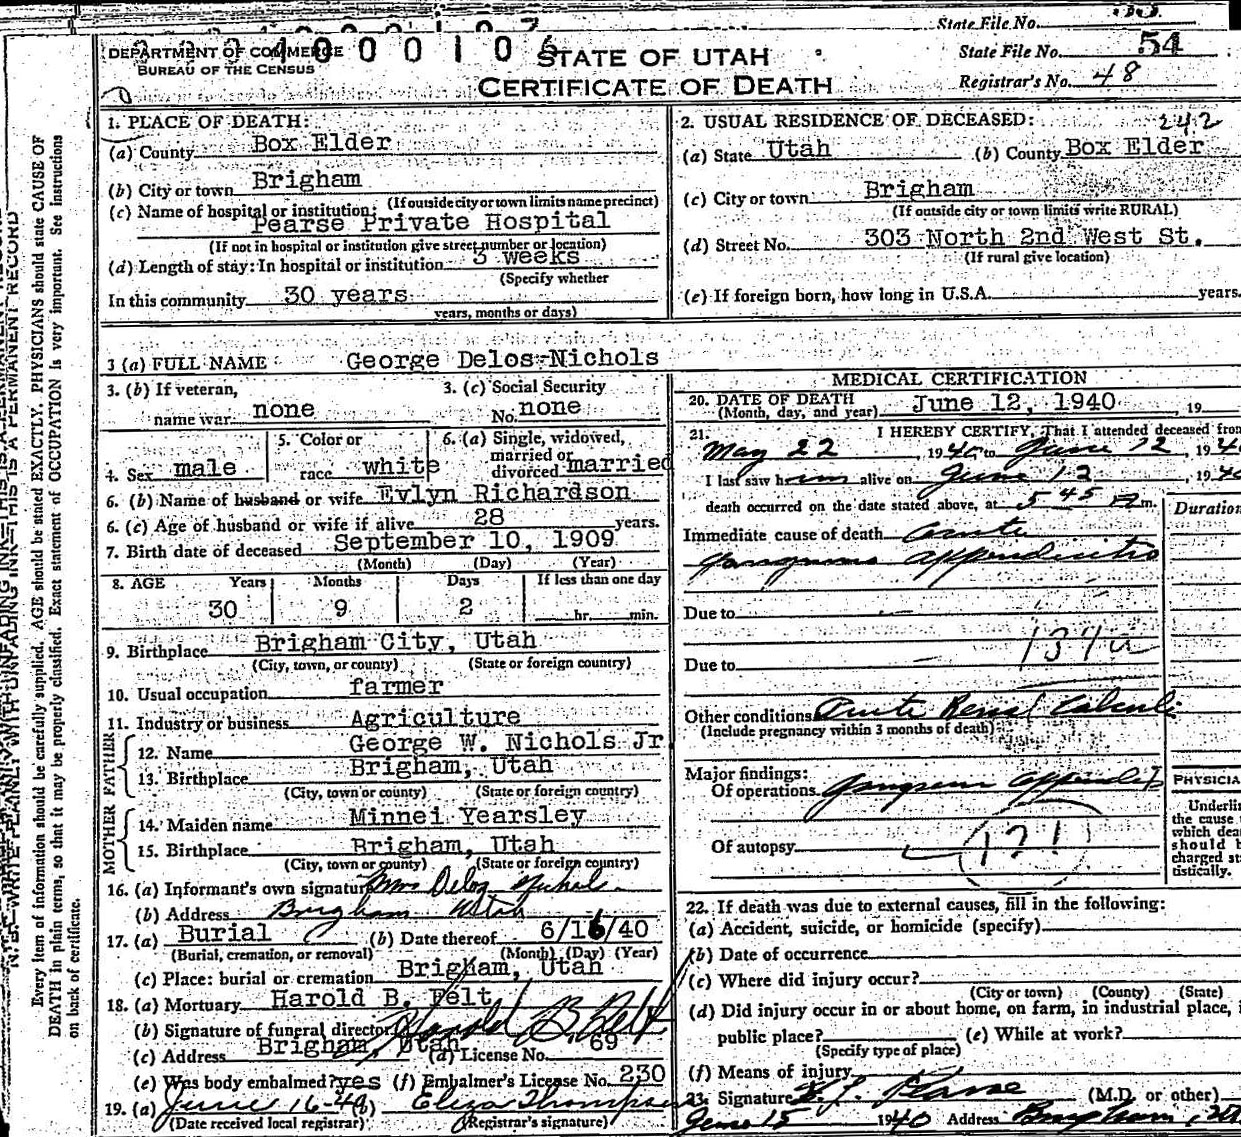 State File No.
DEPARTMENT OF COMMERCE
BUREAU OF THE CENSUS
STATE OF UTAH
CERTIFICATE OF DEATH
State File No. 54
Registrar's No. 48
1. PLACE OF DEATH:
(a) County Box Elder
(b) City or town Brigham
(If outside city or town limits name precinct)
(c) Name of hospital or institution:
Pearse Private Hospital
(If not in hospital or institution give street number or location)
(d) Length of stay: In hospital or institution 3 weeks
(Specify whether
In this community 30 years
years, months or days)
2. USUAL RESIDENCE OF DECEASED: 242
(a) State Utah (b) County Box Elder
(c) City or town Brigham
(If outside city or town limits write RURAL)
(d) Street No. 303 North 2nd West St.
(If rural give location)
(e) If foreign born, how long in U.S.A. years.
3 (a) FULL NAME George Delos Nichols
3. (b) If veteran,
name war none
3. (c) Social Security
No. none
4. Sex male
5. Color or
race white
6. (a) Single, widowed,
married or
divorced married
6. (b) Name of husband or wife Evlyn Richardson
6. (c) Age of husband or wife if alive 28 years.
7. Birth date of deceased September 10, 1909
(Month) (Day) (Year)
8. AGE Years Months Days If less than one day
30 9 2 hr. min.
9. Birthplace Brigham City, Utah
(City, town, or county) (State or foreign country)
10. Usual occupation farmer
11. Industry or business Agriculture
FATHER
12. Name George W. Nichols Jr
13. Birthplace Brigham, Utah
(City, town, or county) (State or foreign country)
MOTHER
14. Maiden name Minnei Yearsley
15. Birthplace Brigham, Utah
(City, town or county) (State or foreign country)
16. (a) Informant's own signature Mrs Delos Nichols
(b) Address Brigham Utah
17. (a) Burial (b) Date thereof 6/16/40
(Burial, cremation, or removal) (Month) (Day) (Year)
(c) Place: burial or cremation Brigham, Utah
18. (a) Mortuary Harold B. Felt
(b) Signature of funeral director Harold B. Felt
(c) Address Brigham, Utah (d) License No. 69
(e) Was body embalmed? yes (f) Embalmer's License No. 230
19. (a) June 16-40 (b) Eliza Thompson
(Date received local registrar) (Registrar's signature)
MEDICAL CERTIFICATION
20. DATE OF DEATH
(Month, day, and year) June 12, 1940, 19
21. I HEREBY CERTIFY, That I attended deceased from
May 22, 1940, to June 12, 194
I last saw him alive on June 12, 1940
death occurred on the date stated above, at 5 45 A m.
Duration
Immediate cause of death Acute
gangrenous appendicitis
Due to
Due to
Other conditions Acute Renal Calculi
(Include pregnancy within 3 months of death)
Major findings:
Of operations
Of autopsy
PHYSICIA
Underlin
the cause
which dea
should b
charged sta
tistically.
22. If death was due to external causes, fill in the following:
(a) Accident, suicide, or homicide (specify)
(b) Date of occurrence
(c) Where did injury occur?
(City or town) (County) (State)
(d) Did injury occur in or about home, on farm, in industrial place, i
public place? (e) While at work?
(Specify type of place)
(f) Means of injury
23. Signature (M.D. or other)
June 15 1940 Address Brigham, Ut
Every item of information should be carefully supplied. AGE should be stated EXACTLY. PHYSICIANS should state CAUSE OF
DEATH in plain terms, so that it may be properly classified. Exact statement of OCCUPATION is very important. See Instructions
on back of certificate.